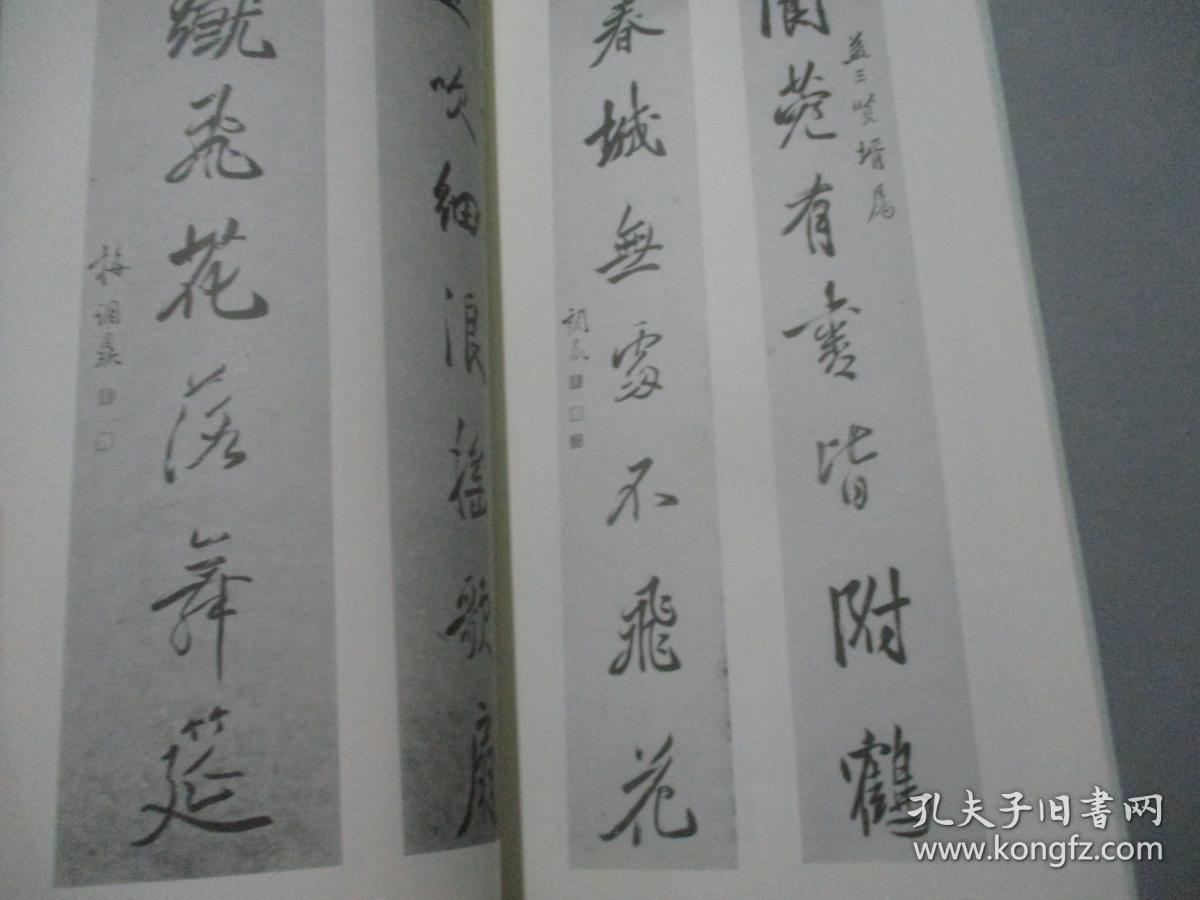 益三賢壻属
閬苑有書皆附鶴
春城無處不飛花
調鼎
吹細浪搖歌扇
蹴飛花落舞筵
梅調鼎
孔夫子旧書网
www.kongfz.com